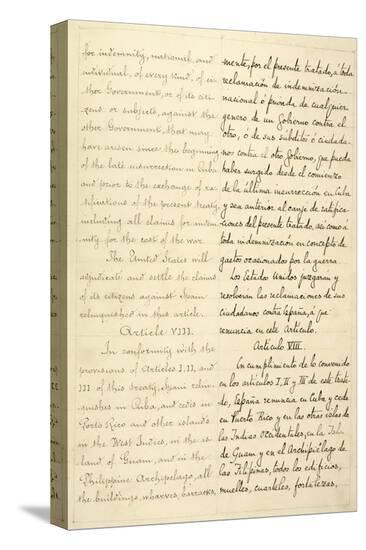 for indemnity, national and
individual, of every kind, of ei-
ther Government, or of its citi-
zens or subjects, against the
other Government, that may
have arisen since the beginning
of the late insurrection in Cuba
and prior to the exchange of ra-
tifications of the present treaty,
including all claims for indem-
nity for the cost of the war.
The United States will
adjudicate and settle the claims
of its citizens against Spain
relinquished in this article.
Article VIII.
In conformity with the
provisions of Articles I, II, and
III of this treaty, Spain relin-
quishes in Cuba, and cedes in
Porto Rico and other islands
in the West Indies, in the is-
land of Guam, and in the
Philippine Archipelago, all
the buildings, wharves, barracks,
mente, por el presente tratado, á toda
reclamación de indemnización
nacional ó privada de cualquier
género de un Gobierno contra el
otro, ó de sus súbditos ó ciudada-
nos contra el otro Gobierno, que pueda
haber surgido desde el comienzo
de la última insurrección en Cuba
y sea anterior al canje de ratifica-
ciones del presente tratado, así como a
toda indemnización en concepto de
gastos ocasionados por la guerra.
Los Estados Unidos juzgarán y
resolverán las reclamaciones de sus
ciudadanos contra España, á que
renuncia en este Artículo.
Artículo VIII.
En cumplimiento de lo convenido
en los artículos I, II y III de este trata-
do, España renuncia en Cuba y cede
en Puerto Rico y en las otras islas de
las Indias Occidentales, en la Isla
de Guam y en el Archipiélago de
las Filipinas, todos los edificios,
muelles, cuarteles, fortalezas,